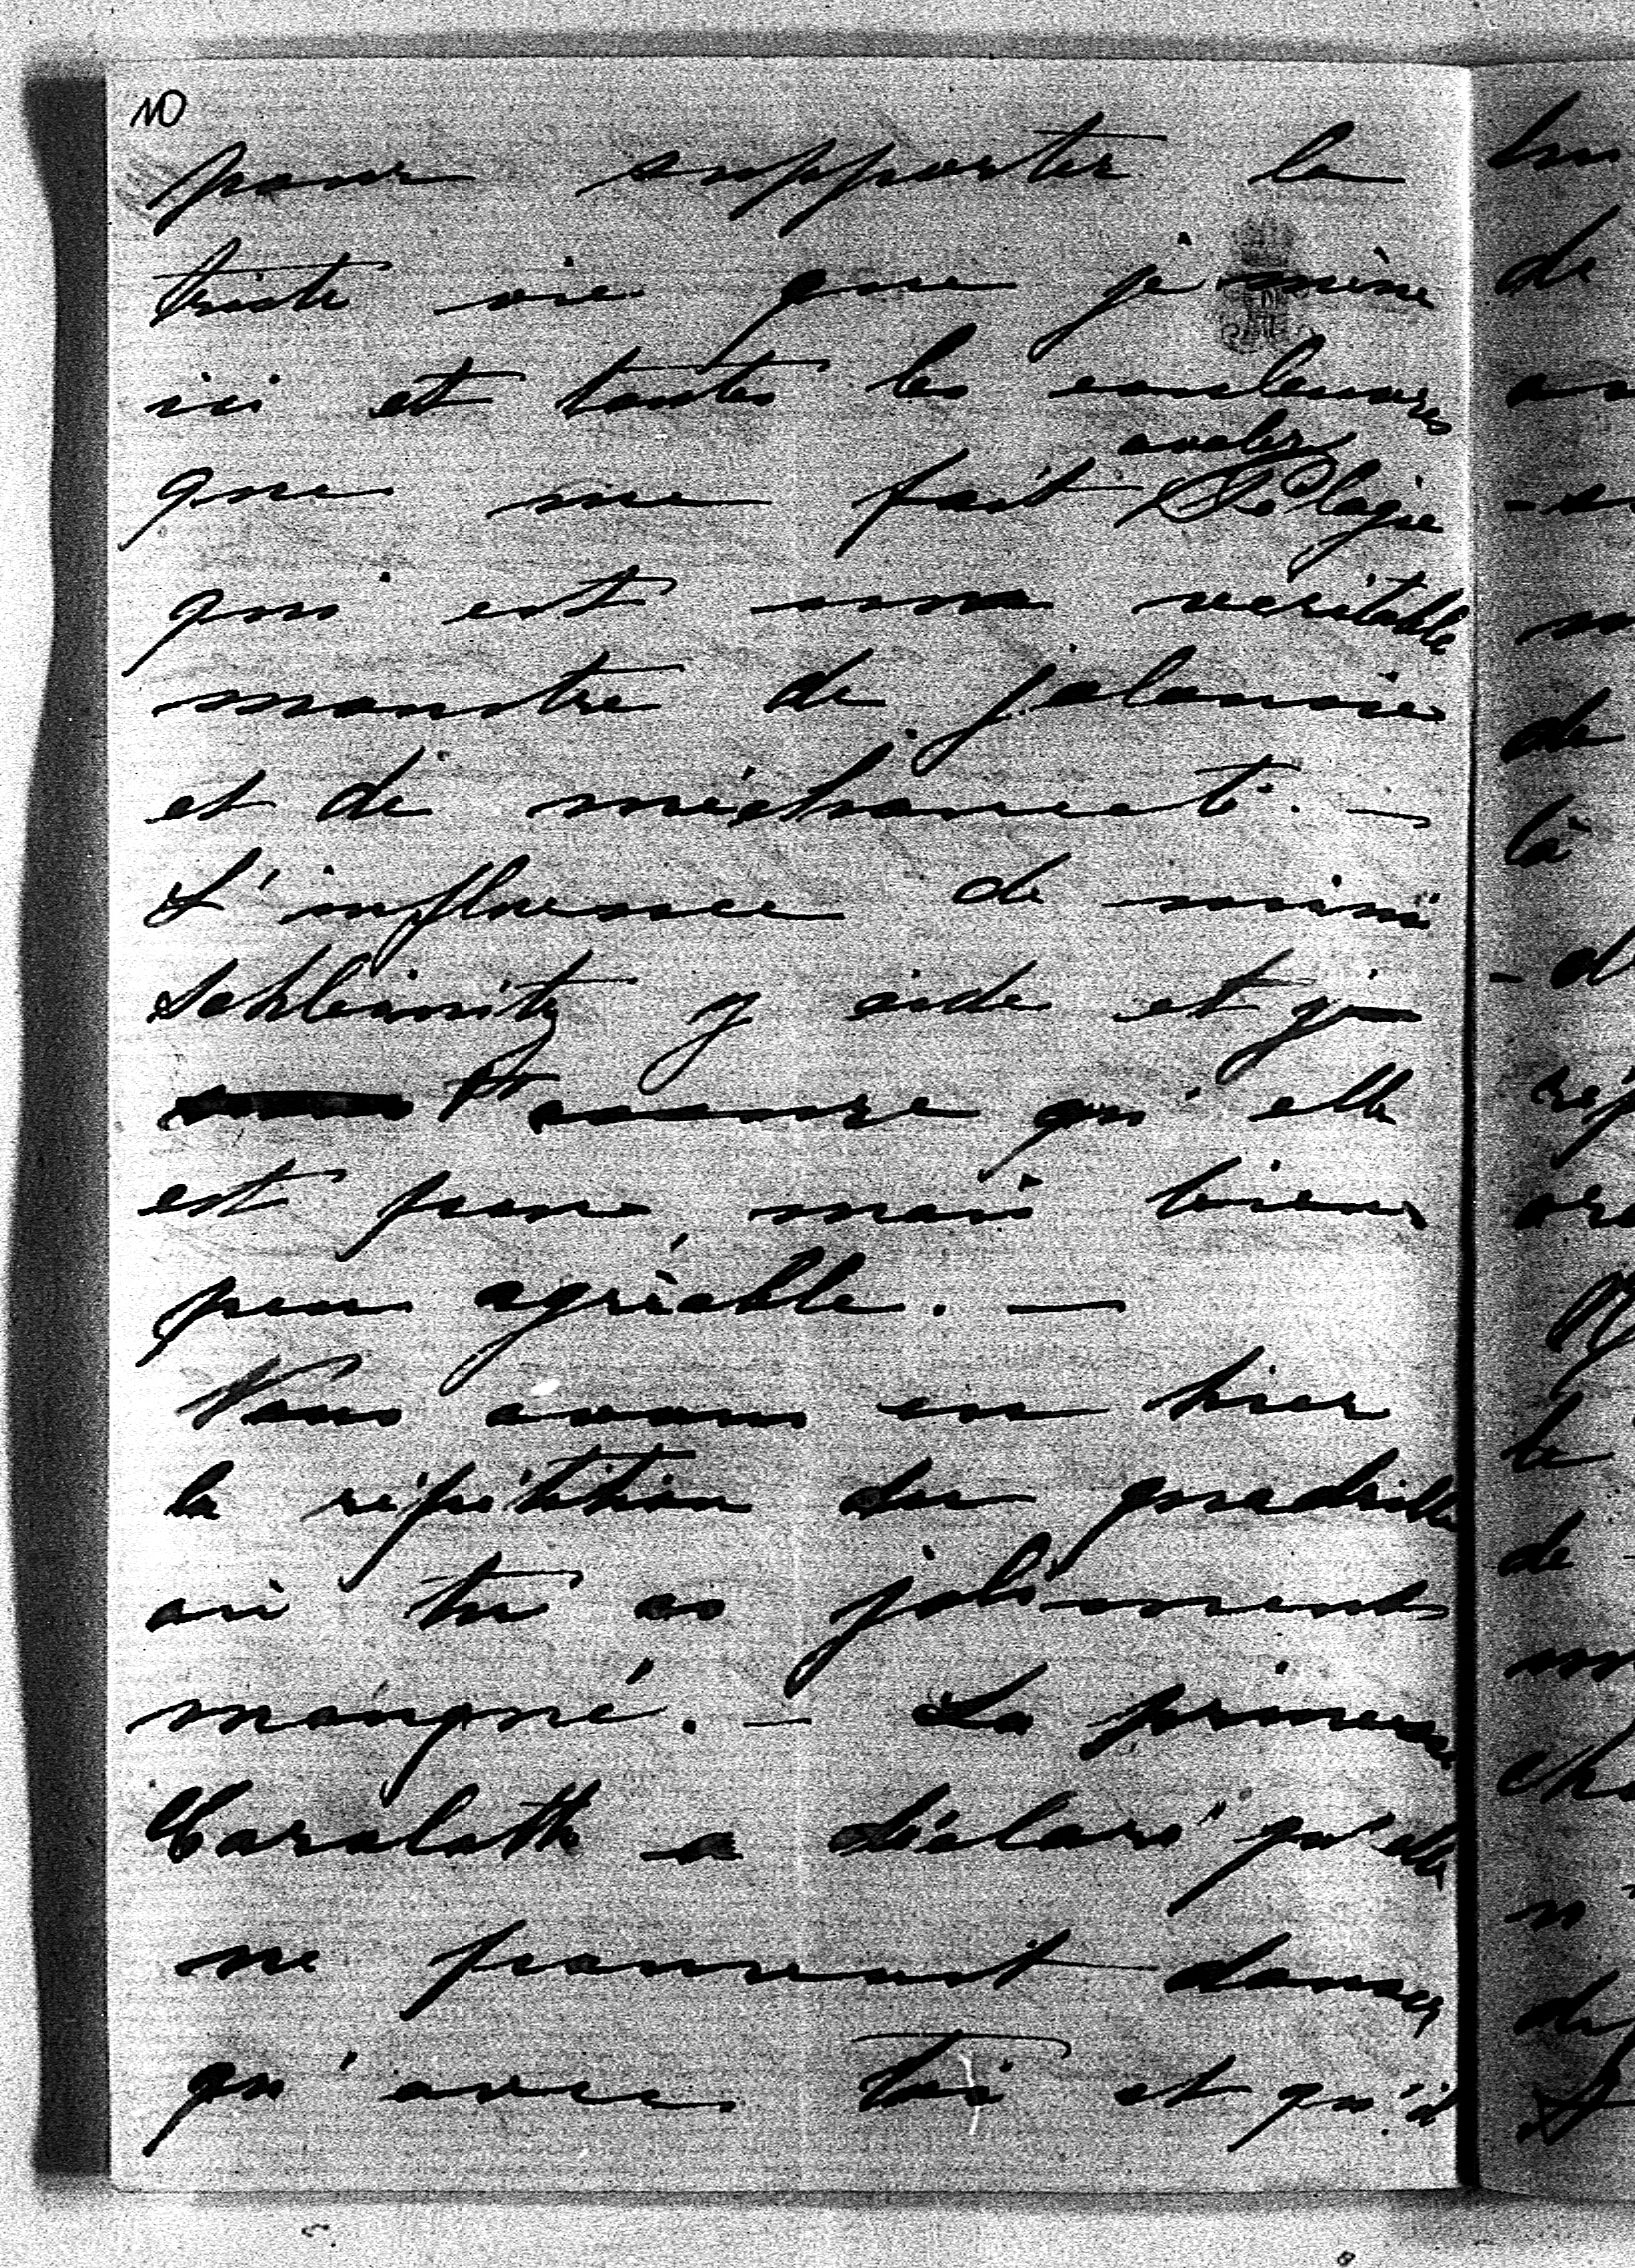 10
pour supporter la
triste vie que je mène
ici et toutes les couleuvres
avaler
que me fait Pélagie
qui est une veritable
monstre de jalousie
et de méchanceté. —
L'influence de mimi
Schleinitz y aide et je
t'assure qu'elle
est pour mais bien
peu agréable. —
Nous avons eu hier
la répétition du quadrille
où tu as joliment
manqué. — La princesse
Carolath a déclaré qu'elle
ne pouvait danser
qu'avec toi et qu'il